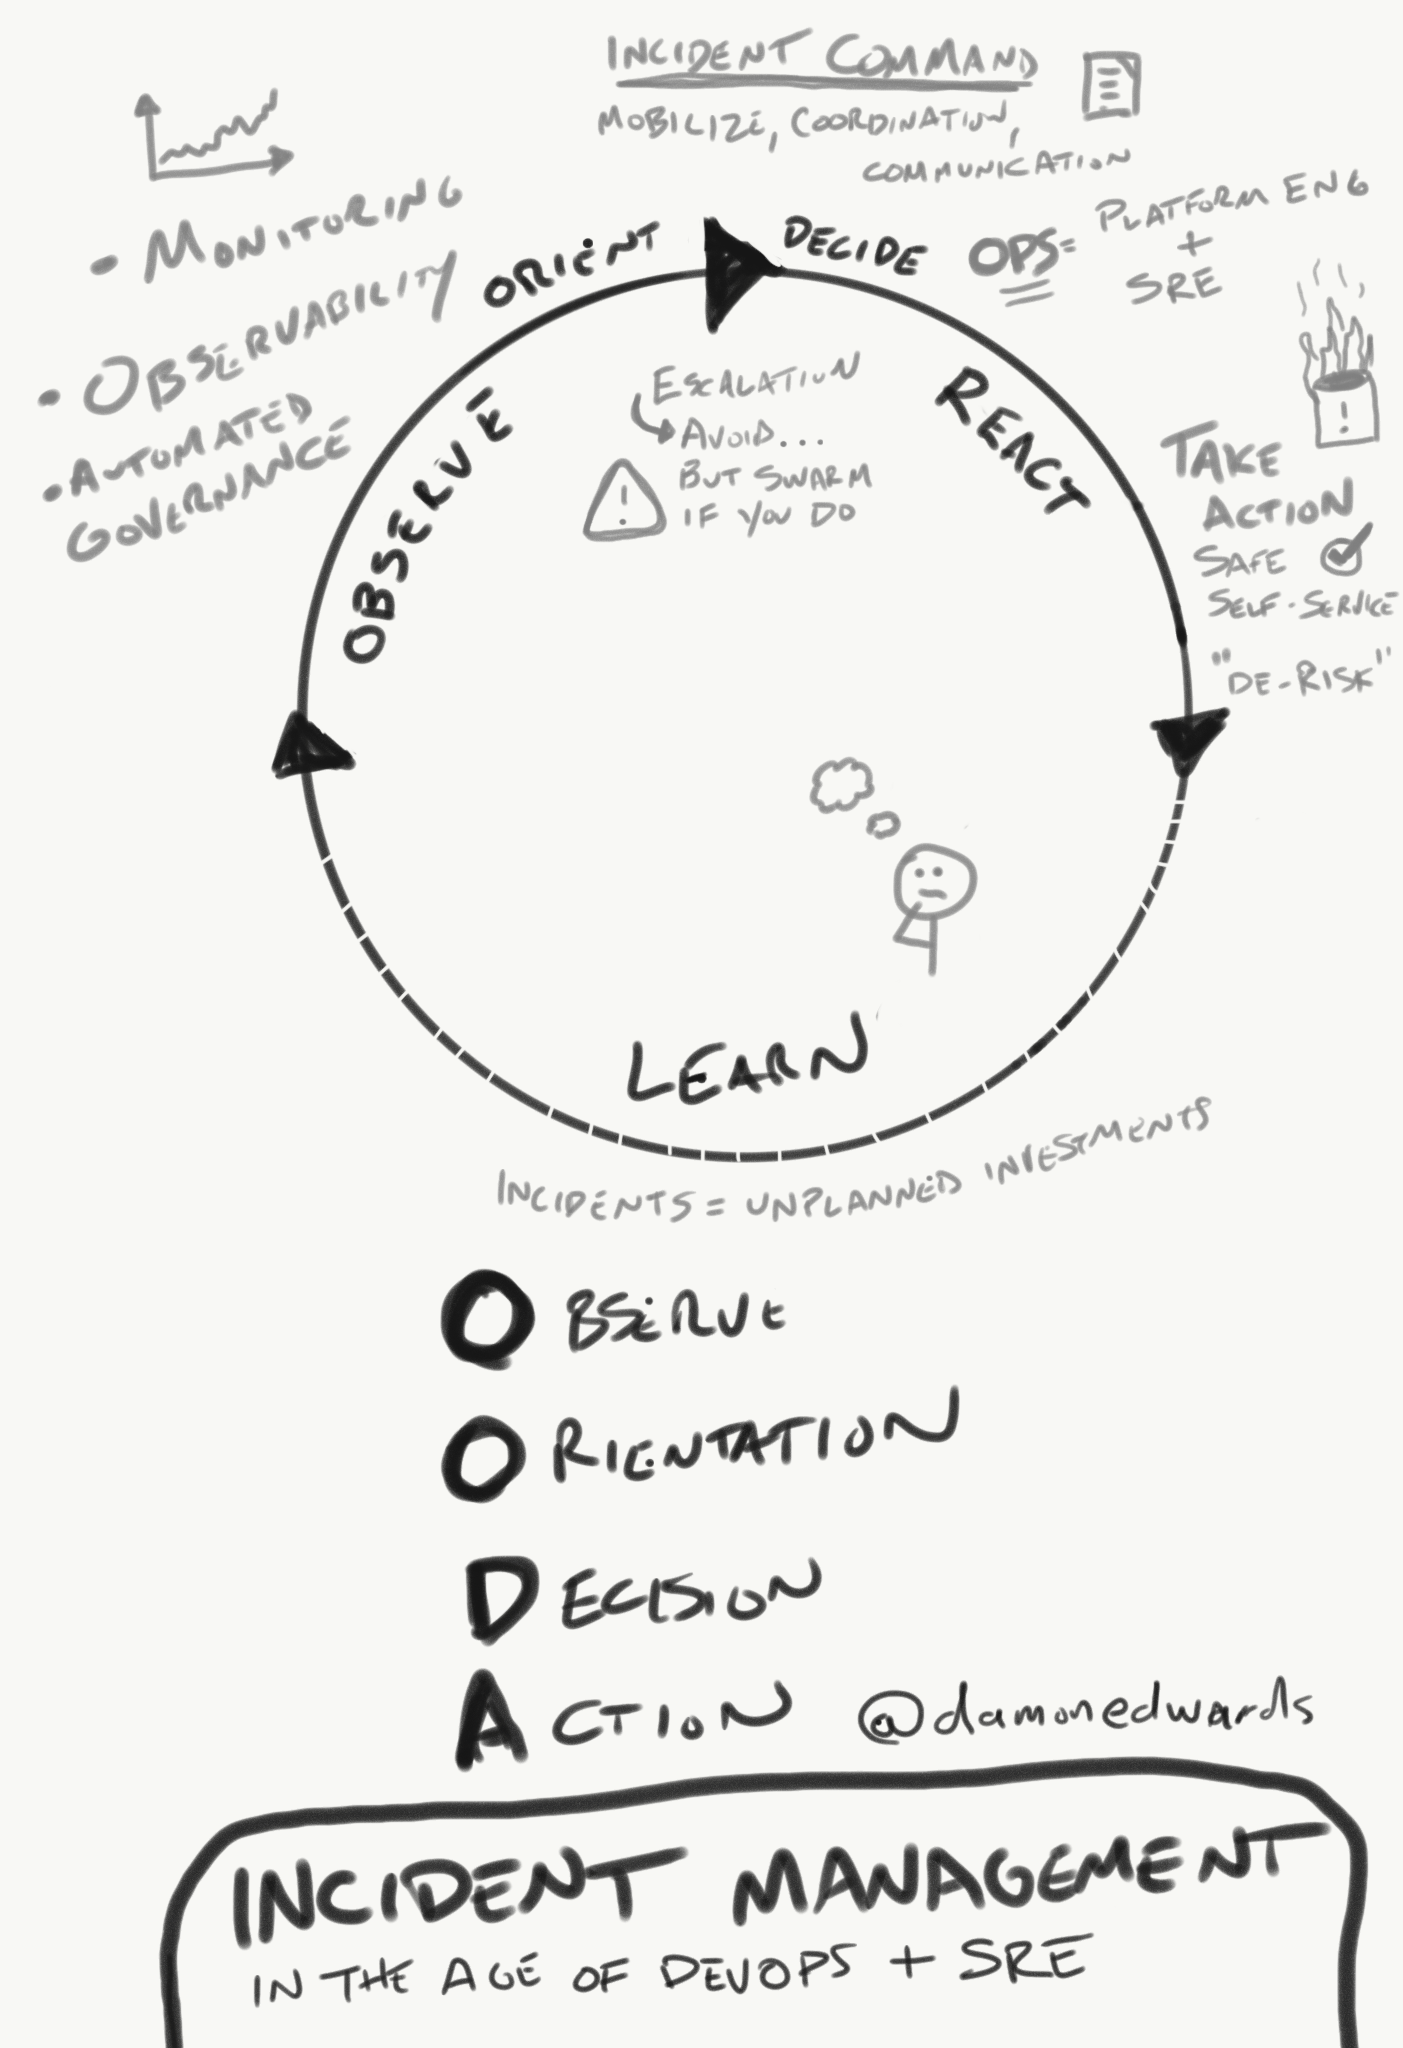 INCIDENT COMMAND
MOBILIZE, COORDINATION,
COMMUNICATION
• MONITORING
• OBSERVABILITY
• AUTOMATED
GOVERNANCE
ORIENT
DECIDE
OPS = PLATFORM ENG
+
SRE
OBSERVE
ESCALATION
AVOID...
BUT SWARM
IF YOU DO
!
REACT
!
TAKE
ACTION
SAFE
SELF-SERVICE
"DE-RISK"
LEARN
INCIDENTS = UNPLANNED INVESTMENTS
OBSERVE
ORIENTATION
DECISION
ACTION
@damonedwards
INCIDENT MANAGEMENT
IN THE AGE OF DEVOPS + SRE